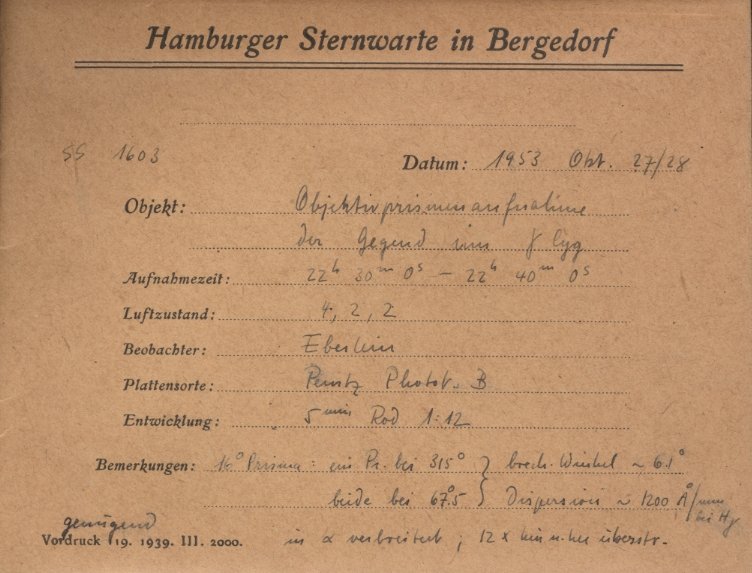 Hamburger Sternwarte in Bergedorf
SS 1603
Datum: 1953 Okt. 27/28
Objekt: Objektivprismenaufnahme
der Gegend um γ Cyg
Aufnahmezeit: 22h 30m 0s – 22h 40m 0s
Luftzustand: 4, 2, 2
Beobachter:
Plattensorte: Perutz Photot. B
Entwicklung: 5 min Rod 1:12
Bemerkungen: Prisma: ein Pr. bei 315° } brech. Winkel ~ 6.1°
beide bei 67°.5 } Dispersion ~ 1200 Å/mm
bei Hγ
genügend
Vordruck 19. 1939. III. 2000.
in α verbreitert; 12 x hin u. her überstr.